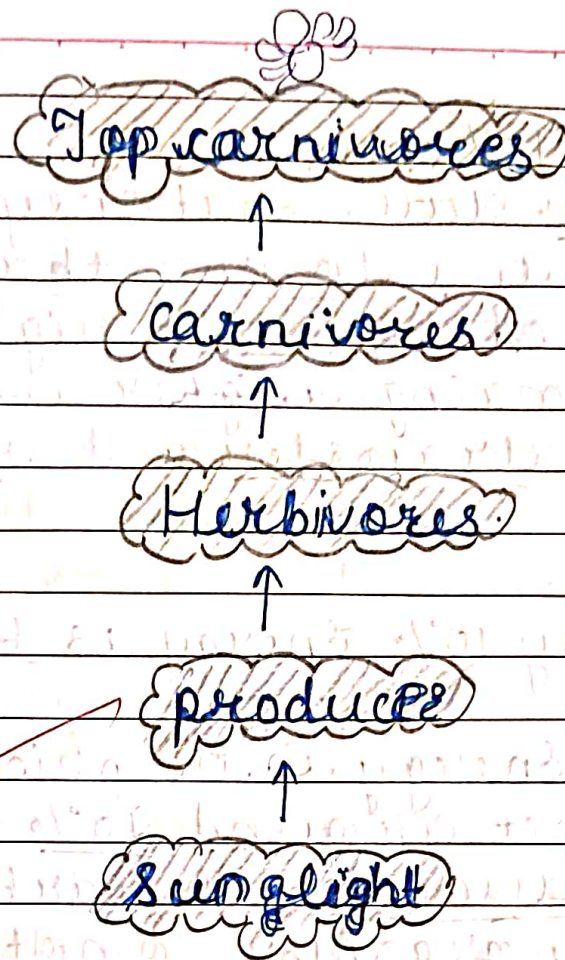 Top carnivores
↑
carnivores.
↑
Herbivores.
↑
produces
↑
sunglight